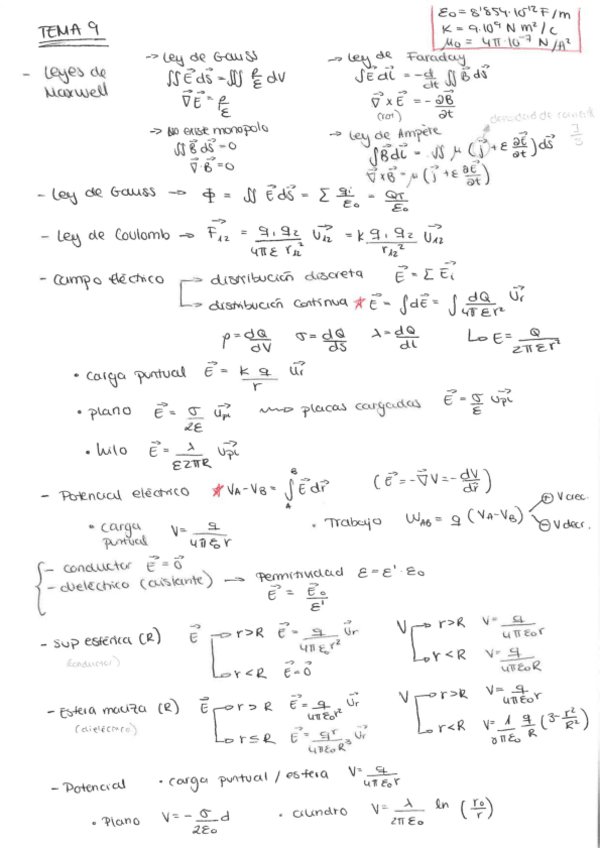 TEMA 9
ε₀ = 8'854·10⁻¹² F/m
K = 9·10⁹ N m²/c
μ₀ = 4π·10⁻⁷ N/A²
- Leyes de Maxwell
→ Ley de Gauss
∬ E⃗ ds⃗ = ∭ ρ/ε dV
∇⃗E⃗ = ρ/ε
→ Ley de Faraday
∫E⃗ dL⃗ = - d/dt ∬ B⃗ ds⃗
∇⃗ x E⃗ = - ∂B⃗/∂t
(rot)
→ No existe monopolo
∬ B⃗ ds⃗ = 0
∇⃗·B⃗ = 0
→ Ley de Ampère
∫B⃗ dL⃗ = ∬ μ (j⃗ + ε ∂E⃗/∂t) ds⃗
∇⃗xB⃗ = μ (j⃗ + ε ∂E⃗/∂t)
- Ley de Gauss → Φ = ∬ E⃗ ds⃗ = Σ qi/ε₀ = QT/ε₀
- Ley de Coulomb → F₁₂⃗ = q₁ q₂/4πε r₁₂² U₁₂⃗ = k q₁ q₂/r₁₂² U₁₂⃗
- Campo eléctrico → distribución discreta E⃗ = Σ E⃗i
→ distribución continua * E⃗ = ∫dE⃗ = ∫ dQ/4πεr² Ur⃗
ρ = dQ/dV σ = dQ/ds λ = dQ/dl ↳ E = Q/2πεr²
• carga puntual E⃗ = K q/r Ur⃗
• plano E⃗ = σ/2ε Upl⃗ → placas cargadas E⃗ = σ/ε Upl⃗
• hilo E⃗ = λ/ε2πR Upl⃗
- Potencial eléctrico * VA - VB = ∫ₐᴮ E⃗ dr⃗ (E⃗ = -∇⃗V = - dV/dr⃗)
• carga puntual V = q/4πε₀r
• Trabajo WAB = q (VA - VB)
⊕ V crec.
⊖ V decr.
- conductor E⃗ = 0⃗
- dieléctrico (aislante) → Permitividad ε = ε'·ε₀
E⃗ = E⃗₀/ε'
- Sup esférica (R) E⃗ → r>R E⃗ = q/4πε₀r² Ur⃗ V → r>R V = q/4πε₀r
(conductor) ↳ r<R E⃗ = 0⃗ ↳ r<R V = q/4πε₀R
- Esfera maciza (R) E⃗ → r > R E⃗ = q/4πε₀r² Ur⃗ V → r>R V = q/4πε₀r
(dieléctrico) ↳ r ≤ R E⃗ = qr/4πε₀R³ Ur⃗ ↳ r<R V = 1/8πε₀ q/R (3 - r²/R²)
- Potencial • carga puntual / esfera V = q/4πε₀r
• Plano V = - σ/2ε₀ d • cilindro V = λ/2πε₀ ln (r₀/r)